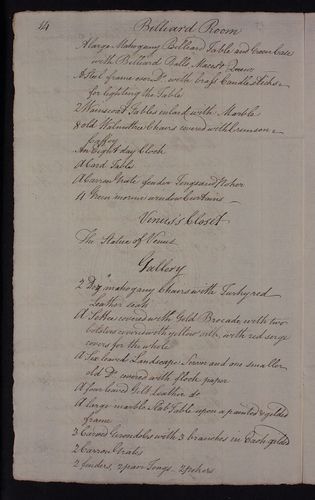 14 Billiard Room
A large Mahogany Billiard Table and Green Case
with Billiard Balls, Maces & Queus
A Steel frame over Do. with brass Candlesticks
for lighting the Table
2 Wainscoat Tables inlaid with Marble
8 old Walnuttree Chairs covered with Crimson
Caffoy
An Eight day Clock
A Card Table
A Carron Grate fender Tongs and Poker
4 Green moreen window Curtains
Venus's Closet
The Statue of Venus
Gallery
2 mahogany Chairs with Turkey red
Leather seats
A Settee covered with Gold Brocade with two
bolsters covered with yellow silk, with red serge
covers for the whole
A Six leaved Landscape Screen and one smaller
old Do. covered with flock paper
A four leaved Gilt Leather do
A large marble Slab Table upon a painted & gilded
frame
3 Carved Gerondoles with 3 branches in Each gilded
2 Carron Grates
2 fenders, 2 pair Tongs, 2 pokers